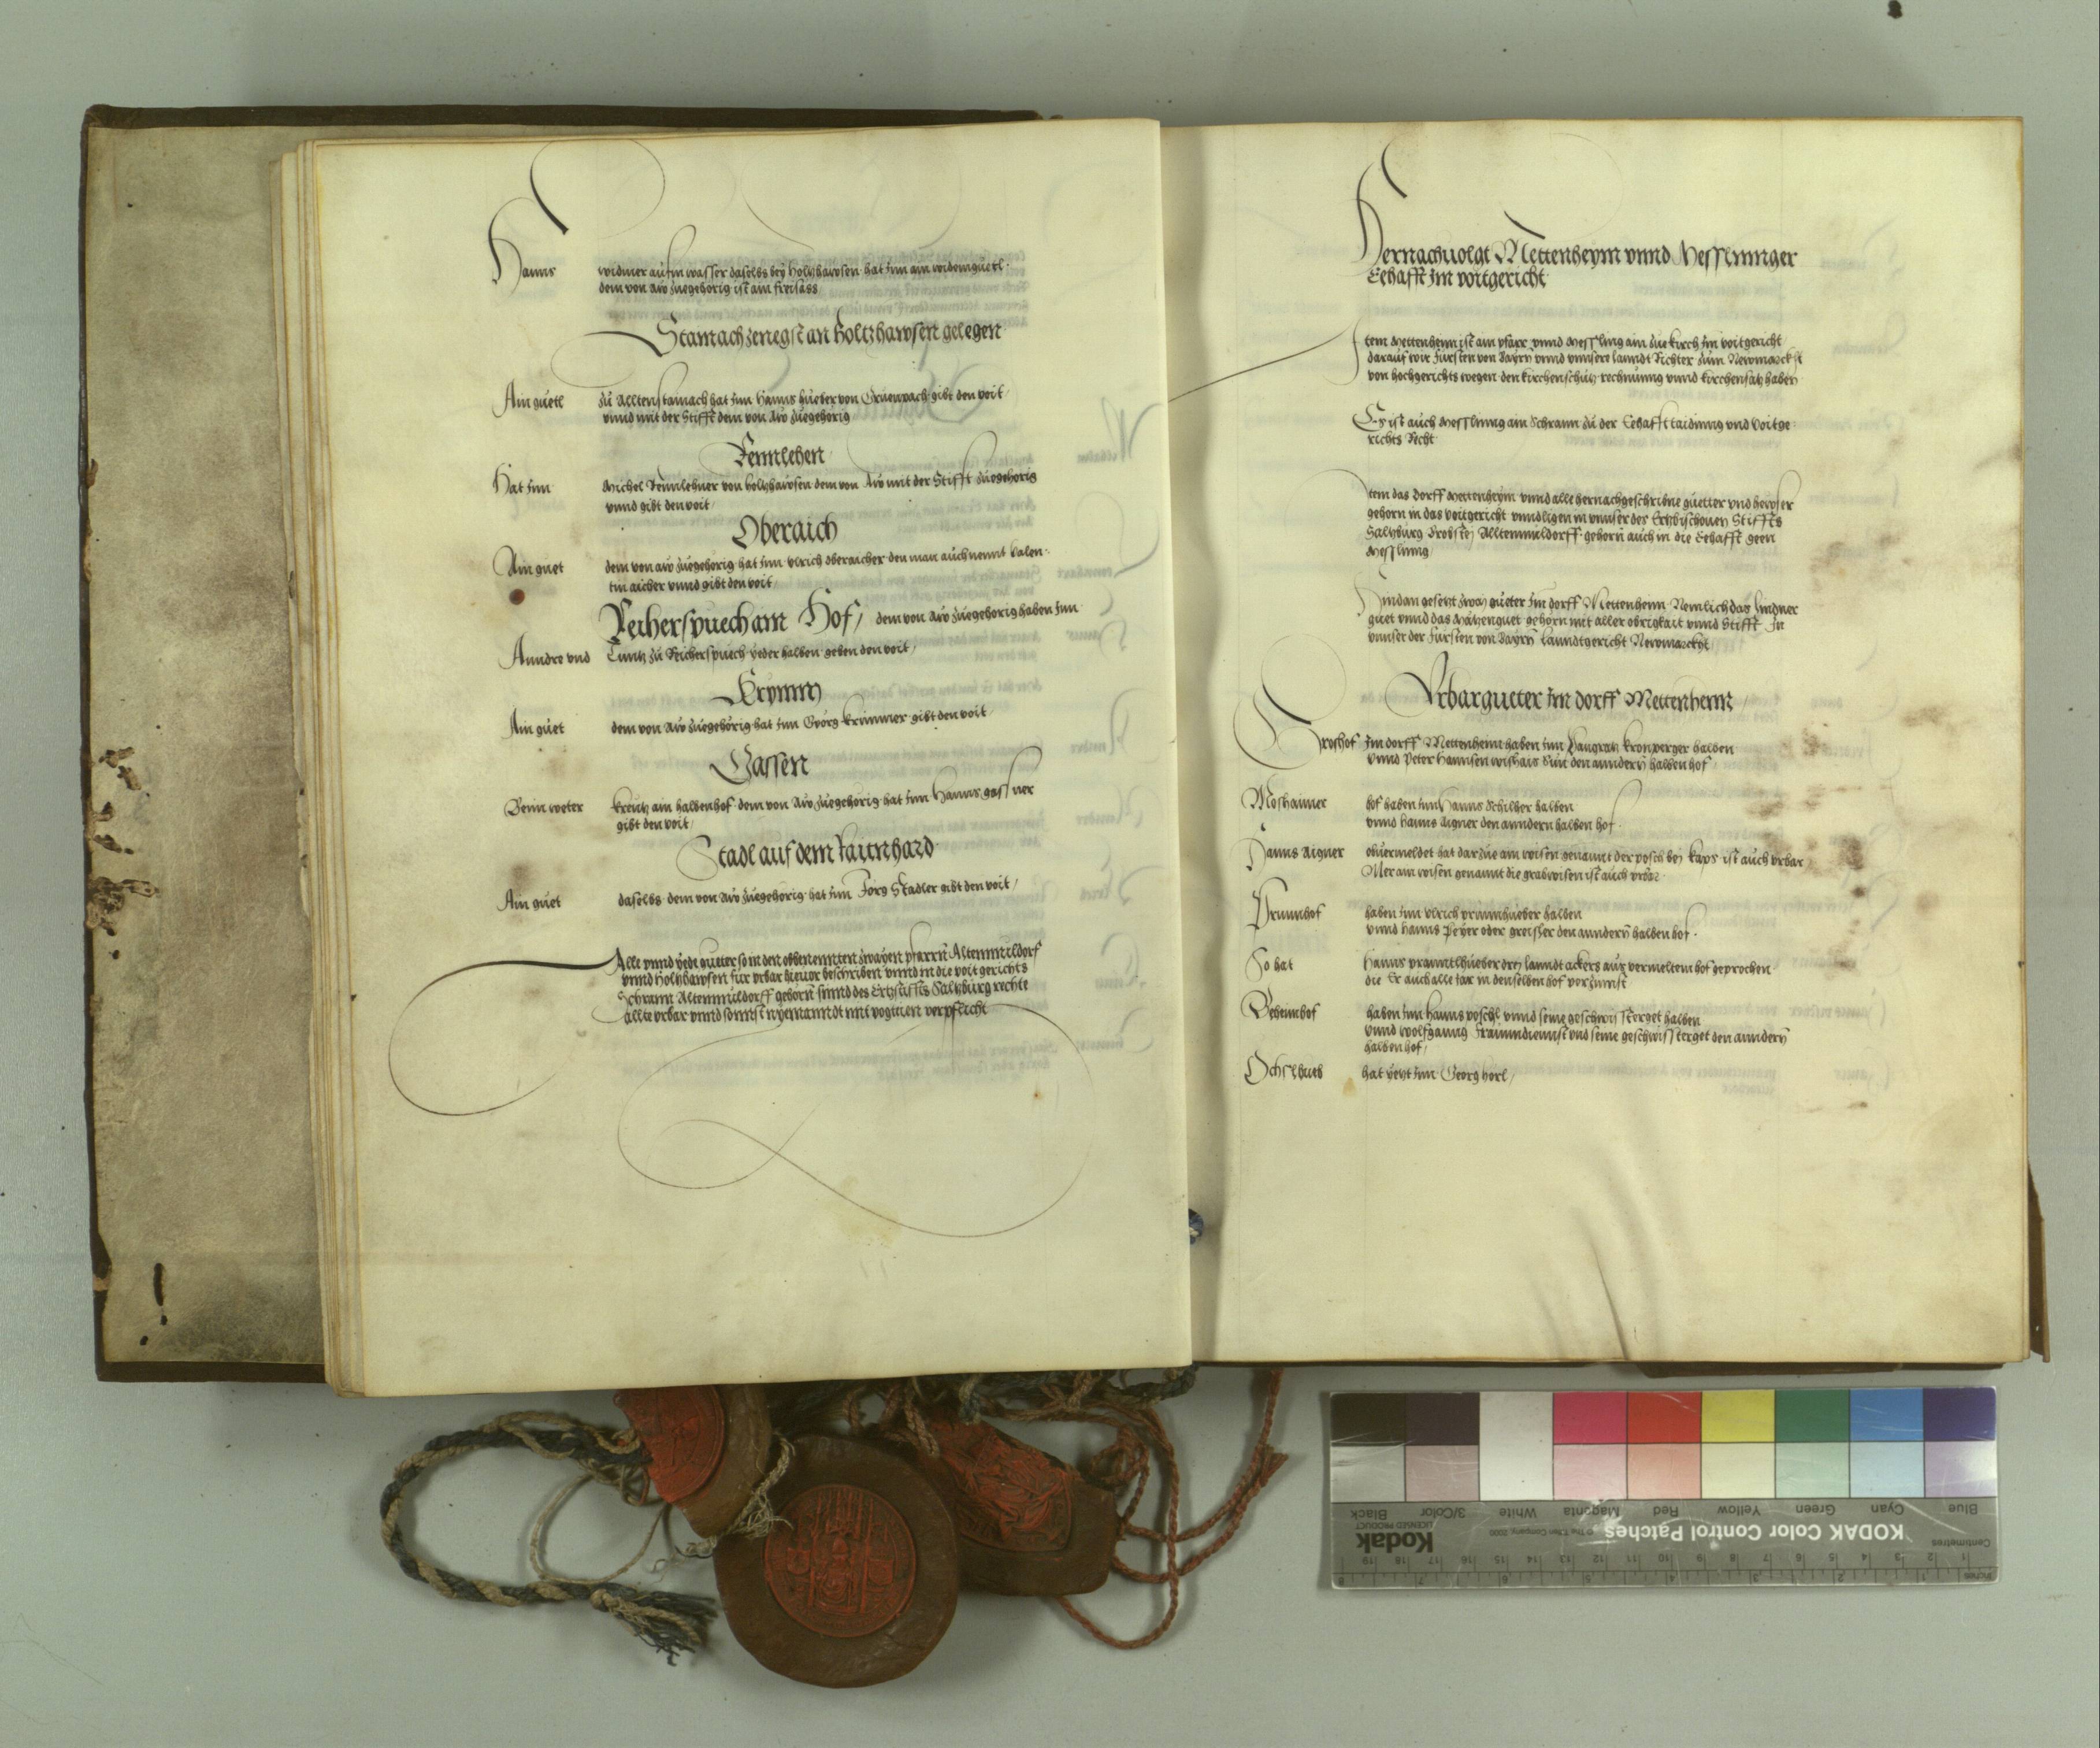 Hanns widmer aufm wasser daselbs bey Holtzhawsen hat inn ain widemguetl
dem von Aw zuegehorig ist ain freisäss
Stamach zenegst an Holtzhawsen gelegen
Ain guetl zu Alltenstamach hat inn Hanns Hueber von Gruenpach gibt den voit
vnnd mit der Stifft dem von Aw zuegehorig
Tennlehen
Hat inn Michel Tennlehner von Holtzhawsen dem von Aw mit der Stifft zuegehorig
vnnd gibt den voit
Oberaich
Ain guet dem von Aw zuegehorig hat inn Vlrich Oberaicher den man auch nennt Valen
tin aicher vnnd gibt den voit
Reicherspuech am Hof, dem von Aw zuegehorig haben inn
Anndre vnd Cuntz zu Reicherspuech yeder halben geben den voit
Krymm
Ain guet dem von Aw zuegehorig hat inn Georg Krimmer gibt den voit
Gassen
Beim weter kreutz ain halbenhof dem von Aw zuegehorig hat inn Hanns gassner
gibt den voit
Stadl auf dem
Ain guet daselbs dem von Aw zuegehorig hat inn Jorg Stadler gibt den voit
Alle vnnd yede gueter so in den obbenennten zwayen pfarrn Altenmuldorf
vnnd Holtzhawsen fur vrbar hieuor beschriben vnnd in die voit gerichts
Schrann Altenmuldorff gehorn sinnd des Ertzstiffts Saltzburg rechte
allte vrbar vnnd sonnst nyemanndt mit vogtien verpflicht
Hernachuolgt Mettenheym vnnd Messlinnger
Eehafft im voitgericht
Item Mettenheim ist ain pfarr vnnd Messling ain zuekirch im voitgericht
darauf wir Fürsten von Bayrn vnnd vnnsere lanndt Richter zum Newmarckht
von hochgerichts wegen den kirchenschutz rechnung vnnd kirchensatz haben
Es ist auch Messlinng ain Schrann zu der Eehafft taidinng vnd Voitge
richts Recht
Item das Dorff Mettenheym vnnd alle hernachgeschribne guetter vnd hewser
gehorn in das voitgericht vnnd ligen in vnnser des Ertzbischouen Stiffts
Saltzburg Brobstey Alltenmuldorff gehorn auch in die Eehafft geen
Messling
Hindan gesetzt zway gueter im dorff Mettenheim Nemlich das Lindner
guet vnnd das guet gehorn mit aller obrigkait vnnd Stifft in
vnnser der Fursten von Bayrn lanndtgericht Newmarckht
Vrbargueter im dorff Mettenheim
Groshof im dorff Mettenheim haben inn Panngratz Kronperger halben
vnnd Peter Hannsen sun den anndern halben hof
Moshaimer hof haben inn Hanns Schilher halben
vnnd Hanns Aigner den anndern halben hof
Hanns Aigner obuermeldet hat darzue ain wisen genannt der posch bey Kaps ist auch vrbar
Mer ain wisen genannt die grabwisen ist auch vrbar
Prunnhof haben inn Vlrich prunnhueber halben
vnnd Hanns Peyer oder den anndern halben hof
So hat Hanns drey lanndt ackers aus vermeltem hof geprochen
die Er auch alle Jar in denselben hof verzinnst
Behemhof haben inn Hanns poschl vnnd seine geschwissterget halben
vnnd Wolfganng Frauendiennst vnd seine geschwissterget den anndern
halben hof
Ochshueb hat yetzt inn Georg
Kodak
LICENSED PRODUCT
KODAK Color Control Patches
© The Tiffen Company, 2000
Blue Cyan Green Yellow Red Magenta White 3/Color Black
Centimetres
Inches
1 2 3 4 5 6 7 8 9 10 11 12 13 14 15 16 17 18 19